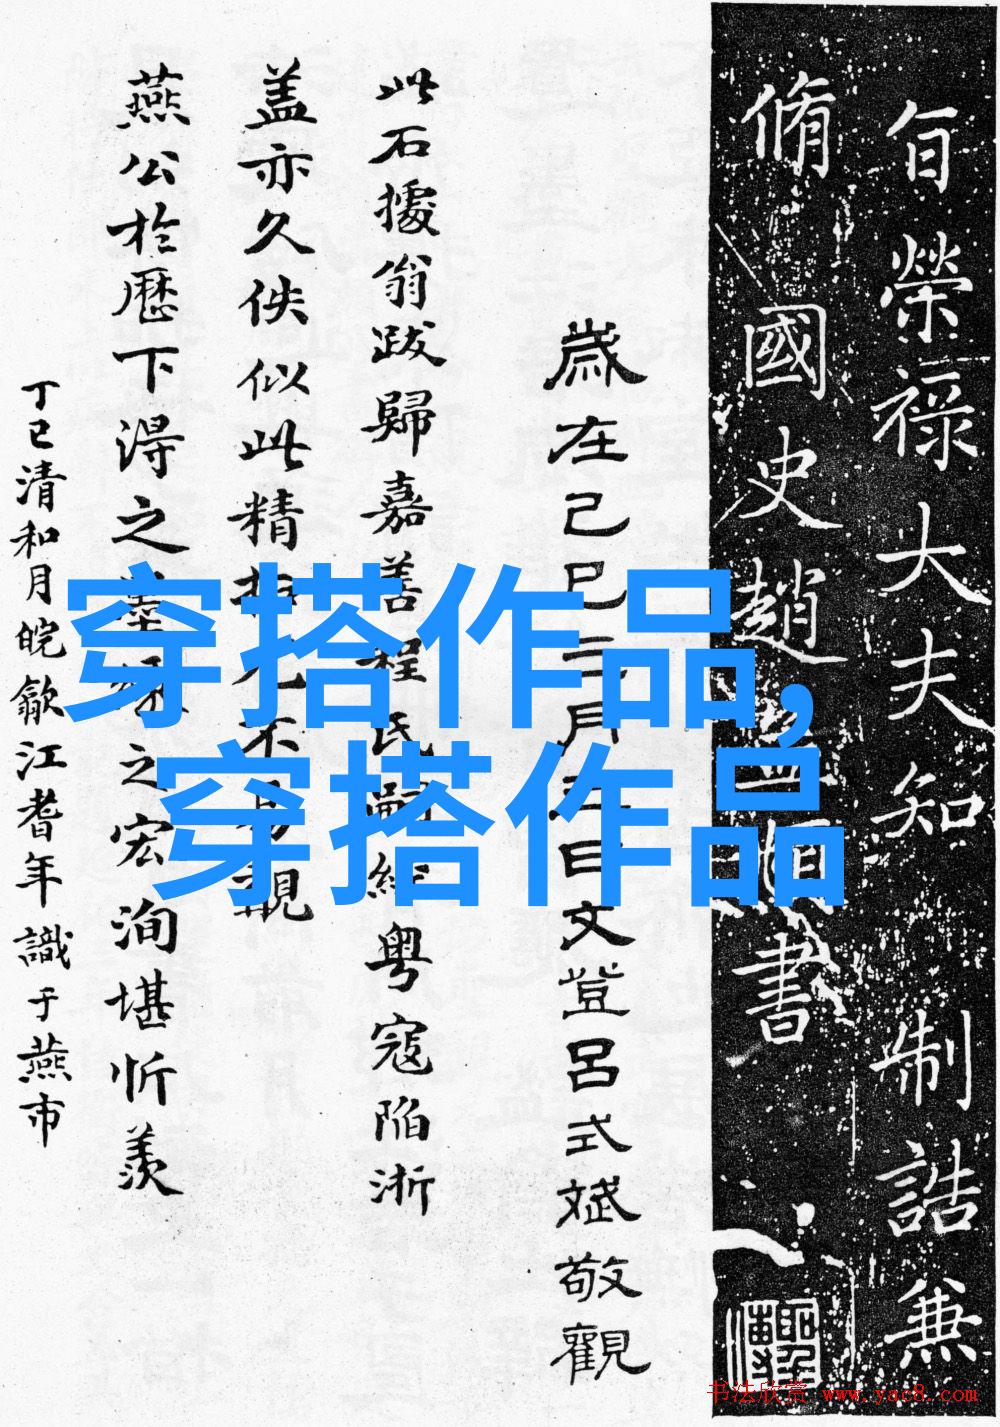 旨榮祿大夫知制誥兼
脩國史趙孟頫書
歲在己巳三月三日文登呂式斌敬觀
此石據翁跋歸嘉善程氏嗣經粵寇陷浙
蓋亦久佚似此精拓尤不易覯
燕公於歷下得之墨緣之宏洵堪忻羨
丁巳清和月皖歙江耆年識于燕市
穿搭作品,
穿搭作品
书法欣赏 www.yac8.com